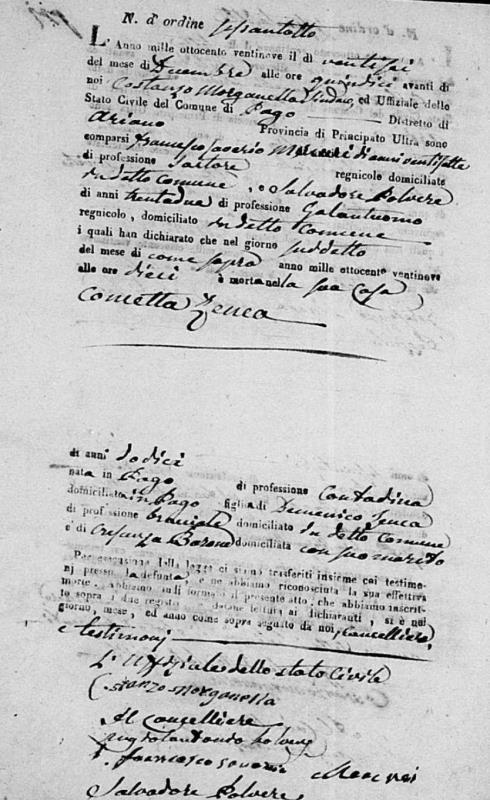 N. d'ordine
L'Anno mille ottocento ventinove il dì ventisei
del mese di Decembre alle ore quindici avanti di
noi Costanzo Morganella Sindaco, ed Uffiziale dello
Stato Civile del Comune di Pago Distretto di
Ariano Provincia di Principato Ultra sono
comparsi Francesco Saverio di anni ventisette
di professione sartore regnicolo domiciliato
in detto Comune, e Salvadore Polvere
di anni trentadue di professione Galantuomo
regnicolo, domiciliato in detto Comune
i quali han dichiarato che nel giorno suddetto
del mese di come sopra anno mille ottocento ventinove
alle ore dieci è morta nella sua Casa
Cometta Zeuca
di anni dodici
nata in Pago di professione Contadina
domiciliata in Pago figlia di Domenico Zeuca
di professione bracciale domiciliato in detto Comune
e di Crescenza Barone domiciliata con suo marito
Per esecuzione della legge ci siamo trasferiti insieme coi testimo-
nj presso la defunta e ne abbiamo riconosciuta la sua effettiva
morte. abbiamo indi formato il presente atto, che abbiamo inscrit-
to sopra i due registri datone lettura ai dichiaranti, si è nel
giorno, mese, ed anno come sopra segnato da noi, Cancelliere,
e testimonj
L'Uffiziale dello stato Civile
Costanzo Morganella
Il Cancelliere
Polvere
Francesco Saverio
Salvadore Polvere